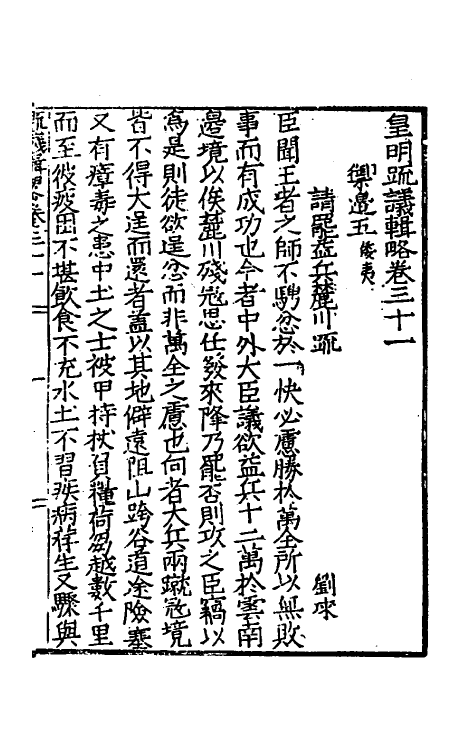 皇明疏議輯略卷三十一
禦邊五 倭夷
請罷益兵麓川疏 劉球
臣聞王者之師不騁忿於一快必慮勝於萬全所以無敗
事而有成功也今者中外大臣議欲益兵十二萬於雲南
邊境以俟麓川殘寇思任發來降乃罷否則攻之臣竊以
為是則徒欲逞忿而非萬全之慮也向者大兵兩蹴寇境
皆不得大逞而還者蓋以其地僻遠阻山跨谷道途險塞
又有瘴毒之患中土之士被甲持杖負糧荷芻越數千里
而至彼疲困不堪飲食不充水土不習疾病荐生又驟與
疏議輯略卷三十一 一